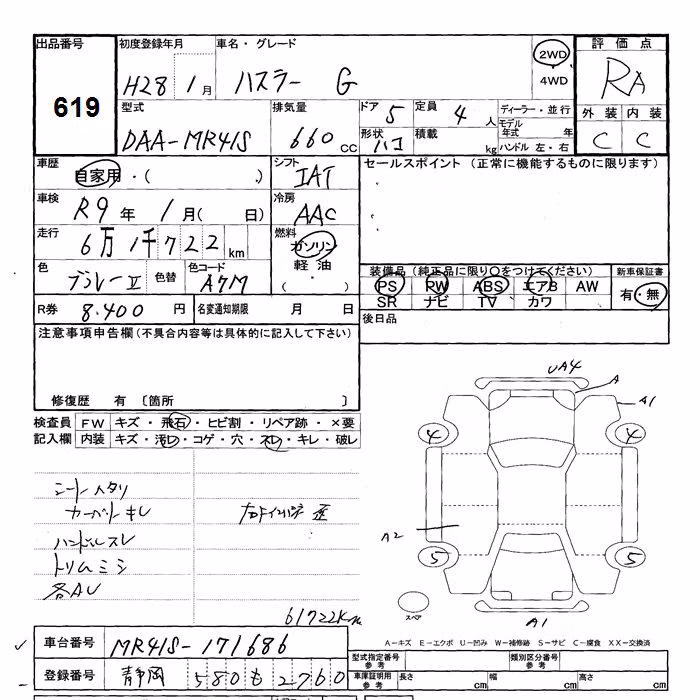 出品番号 初度登録年月 車名・グレード 2WD 評価点
619 H28 1月 ハスラー G 4WD RA
型式 排気量 ドア 5 定員 4人 ディーラー・並行 外装 内装
DAA-MR41S 660cc 形状 ハコ 積載 kg モデル年式 年 C C
ハンドル 左・右
車歴 自家用・( ) シフト IAT セールスポイント (正常に機能するものに限ります)
車検 R9年 1月( 日) 冷房 AAC
走行 6万1千722km 燃料 ガソリン
軽油
( ・ )
色 色替 色コード 装備品 (純正品に限り○をつけてください) 新車保証書
PS PW ABS エアB AW 有・無
SR ナビ TV カワ
R券 8,400円 名変通知期限 月 日 後日品
注意事項申告欄(不具合内容等は具体的に記入して下さい)
修復歴 有 〔箇所 〕
検査員 FW キズ・飛石・ヒビ割・リペア跡・×要
記入欄 内装 キズ・汚レ・コゲ・穴・スレ・キレ・破レ
UA4
A
A1
4 4
シートヘタリ
カーペットキレ
ハンドルスレ
A2
トリムミシ
5 5
各AU
61722Km
スペア
A1
A-キズ E-エクボ U-凹み W-補修跡 S-サビ C-腐食 XX-交換済
車台番号 MR41S-171686
型式指定番号 参考 類別区分番号 参考
登録番号 静岡 580 も 2760
車庫証明用 参考 長さ cm 幅 cm 高さ cm